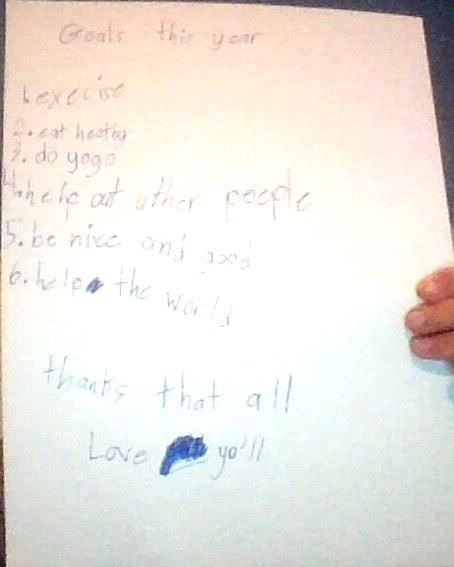 Goals this year
1. execise
2. eat heathy
3. do yoga
4. help out uther people
5. be nice and good
6. help the world
thanks that all
Love yo'll